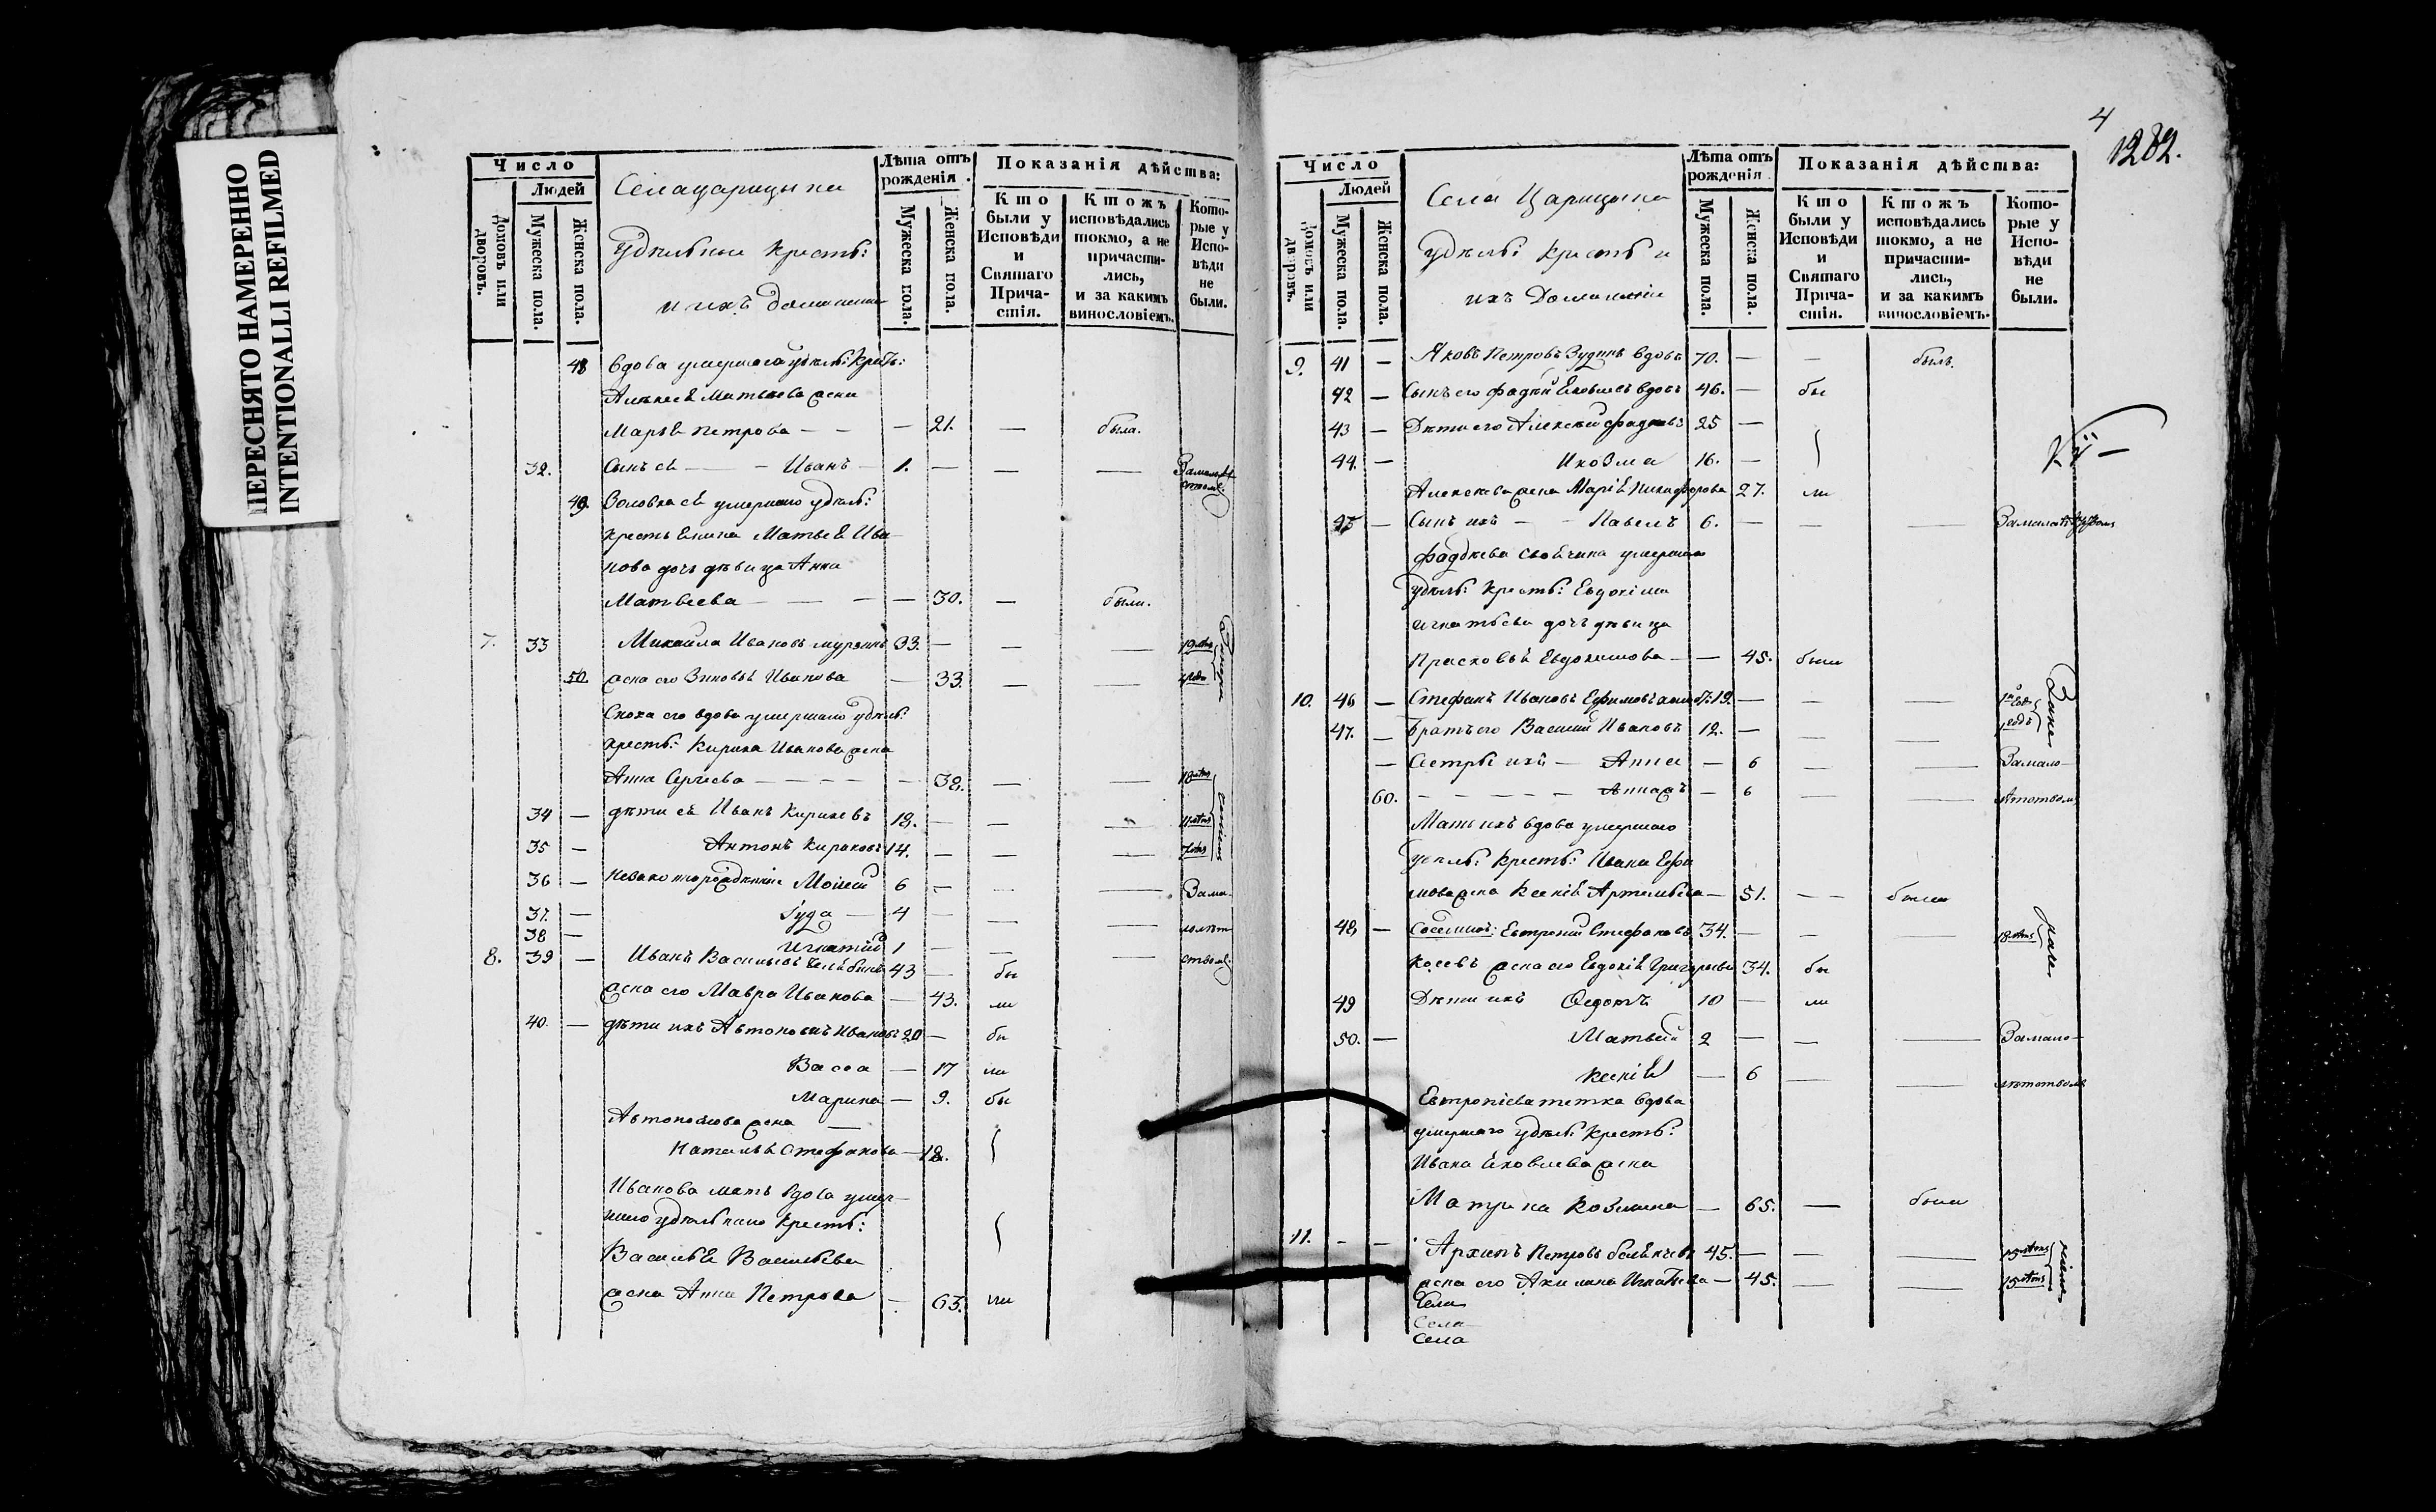 ПЕРЕСНЯТО НАМЕРЕННО
INTENTIONALLI REFILMED
Число
Людей
Домовъ или дворовъ.
Мужеска пола.
Женска пола.
Села царицына
Удѣльные крестѣ:
и ихъ домашнии
Лѣта отъ рожденія.
Мужеска пола.
Женска пола.
Показанія дѣйства:
Кто были у Исповѣди и Святаго Прича-стія.
Ктожъ исповѣдались токмо, а не причасти-лись, и за какимъ винословіемъ.
Кото-рые у Испо-вѣди не были.
48 вдова умершаго удѣль: крестъ:
Алексея Матвеева жена
Марья Петрова — — — 21. — была.
32. Сынъ ея — — Иванъ — 1. — — —
49. Золовка ея умершаго удѣль:
крестьянина Матвея Ива
нова дочь дѣвица Анна
Матвеева — — — — 30. — были.
7. 33 Михайла Ивановъ 33. — — —
50. жена его Зиновья Иванова — 33. — —
Сноха его вдова умершаго удѣль:
кресть: Кирила Иванова жена
Анна Сергиева — — — — — 38. — —
34 — дѣти ея Иванъ Кириловъ 18. — — —
35 — Антонъ Кириловъ 14. — — —
36 — Моисей 6 — — — Зама
37. — Іуда — 4 — — — лолѣт
38 — Игнатий 1 — — — ствомъ
8. 39 — Иванъ Васильевъ 43 — бы
жена его Мавра Иванова — 43. ли
40. — дѣти ихъ Автономъ Ивановъ 20 — бы
Васса — 17 ли
Марина — 9. бы
Автономова жена —
Наталья Стефанова — 18.
Иванова мать вдова умер
шаго удѣльнаго кресть:
Василья Васильева
жена Анна Петрова — 63. ли
4
1282.
Число
Людей
Домовъ или дворовъ.
Мужеска пола.
Женска пола.
Села Царицына
удѣль: крестъ и
ихъ Домашнии
Лѣта отъ рожденія
Мужеска пола.
Женска пола.
Показанія дѣйства:
Кто были у Исповѣди и Святаго Прича-стія.
Ктожъ исповѣдались токмо, а не причасти-лись, и за какимъ винословіемъ.
Кото-рые у Испо-вѣди не были.
9. 41 — Яковъ Петровъ Зудинъ вдовъ 70. — — былъ.
42 — Сынъ его Фадѣй Яковлевъ вдовъ 46. — бы
43 — Дѣти его Алексѣй Фадѣевъ 25 —
44. — Козма 16. —
Алексѣева жена Марія Никифорова 27. ли
45 — Сынъ ихъ — — Павелъ 6. — — —
Фаддѣева умершаго
Удѣль: кресть: Евдокима
Игнатьева дочь дѣвица
Прасковья Евдокимова — — 45. были
10. 46 — Стефанъ Ивановъ Ефимовъ 19. — — —
47. — Братъ его Василий Ивановъ 12. — — —
— Сестры ихъ — Анна — 6 — — Замало
60. — — — — — Анна жъ — 6 — — лѣтством
Мать ихъ вдова умершаго
удѣль: кресть: Ивана Ефи
мова жена Ксения Артемьева — 51. — — были
48 — Евтропий Стефановъ 34. — — —
жена его Евдокия Григорьева 34. бы
49 Дѣти ихъ Федотъ 10 — ли
50. — Матвей 2 — — — Замало
Ксения — 6 — — лѣтством
Евтропіева тетка вдова
умершаго удѣль: кресть:
Ивана Яковлева жена
Матрена Козмина — 65. — были
11. — — Архипъ Петровъ 45. — — —
жена его Акилина Игнатьева — 45. — —
Села
Села
Села